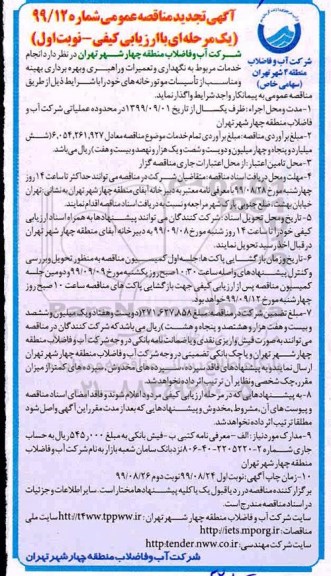 آگهی تجدید مناقصه عمومی شماره ۹۹/۱۲
(یک مرحله ای با ارزیابی کیفی - نوبت اول)
شرکت آب و فاضلاب
منطقه ۴ شهر تهران
(سهامی خاص)
شرکت آب وفاضلاب منطقه چهار شهر تهران در نظر دارد انجام
خدمات مربوط به نگهداری و تعمیرات و راهبری وبهره برداری بهینه
ومناسب از تأسیسات موتورخانه های خود را با شرایط ذیل از طریق
مناقصه عمومی به پیمانکار واجد شرایط واگذار نماید.
۱-مدت و محل اجراء: ظرف یکسال از تاریخ ۱۳۹۹/۰۹/۰۱ در محدوده عملیاتی شرکت آب و
فاضلاب منطقه چهار شهر تهران
۲-مبلغ برآوردی مناقصه: مبلغ برآوردی تمام خدمات موضوع مناقصه معادل ۶،۰۵۴،۲۶۱،۹۲۷(شش
میلیارد و پنجاه و چهار میلیون و دویست و شصت و یک هزار و نهصد و بیست و هفت) ریال می باشد
۳-محل تامین اعتبار: از محل اعتبارات جاری مناقصه گزار
۴-مهلت و محل دریافت اسناد مناقصه: متقاضیان شرکت در مناقصه می توانند حداکثر تا ساعت ۱۴ روز
چهارشنبه مورخ ۹۹/۰۸/۲۸ با معرفی نامه معتبر به دبیرخانه آبفای منطقه چهار شهر تهران به نشانی: تهران
خیابان بهشت، ضلع جنوبی پارک شهر مراجعه و نسبت به دریافت اسناد مناقصه اقدام نمایند.
۵-تاریخ و محل تحویل اسناد: شرکت کنندگان می توانند پیشنهادها به همراه اسناد ارزیابی
کیفی خود را تا ساعت ۱۴ روز شنبه مورخ ۹۹/۰۹/۰۸ به دبیرخانه آبفای منطقه چهار شهر تهران
در قبال اخذ رسید تحویل نمایند.
۶-تاریخ و زمان بازگشایی پاکت ها: جلسه اول کمیسیون مناقصه به منظور تحویل و بررسی
و کنترل پیشنهادهای واصله ساعت ۱۰:۳۰ صبح روز یکشنبه مورخ ۹۹/۰۹/۰۹ و دومین جلسه
کمیسیون مناقصه پس از ارزیابی کیفی جهت بازگشایی پاکت های مناقصه ساعت ۱۰ صبح روز
چهارشنبه مورخ ۹۹/۰۹/۱۲ خواهد بود.
۷-مبلغ تضمین شرکت در مناقصه: مبلغ ۲۷۱،۶۲۷،۸۵۸(دویست و هفتاد و یک میلیون و ششصد
و بیست و هفت هزار و هشتصد و پنجاه و هشت) ریال می باشد که شرکت کنندگان در مناقصه
می توانند به صورت فیش واریز نقدی و یا ضمانت نامه بانکی در وجه شرکت آب و فاضلاب منطقه
چهار شهر تهران و یا چک بانکی تضمینی در وجه شرکت آب و فاضلاب منطقه چهار شهر تهران
ارسال نمایند و به پیشنهادهای فاقد سپرده، سپرده های مخدوش، سپرده های کمتر از میزان
مقرر، چک شخصی و نظایر آن ترتیب اثر داده نخواهد شد.
۸-به پیشنهادهایی که در مرحله ارزیابی کیفی مردود اعلام شوند و فاقد امضای اسناد مناقصه
و پیوست های آن، مشروط، مخدوش و پیشنهادهایی که بعد از مدت مقرر این آگهی واصل شود
مطلقا ترتیب اثر داده نخواهد شد.
۹-مدارک مورد نیاز: الف - معرفی نامه کتبی ب - فیش بانکی به مبلغ ۵۴۵،۰۰۰ ریال به حساب
نزد بانک سامان شعبه بازار به نام شرکت آب و فاضلاب
منطقه چهار شهر تهران
۱۰-زمان چاپ آگهی: نوبت اول ۹۹/۰۸/۲۴ نوبت دوم ۹۹/۰۸/۲۶
برگزار کننده مناقصه در رد یا قبول یک یا کلیه پیشنهادها مختار است. سایر اطلاعات و جزئیات در
اسناد مناقصه مندرج است.
سایت شرکت آب و فاضلاب منطقه چهار شهر تهران: http://t4ww.tppww.ir سایت ملی
مناقصات: http://iets.mporg.ir
سایت شرکت مهندسی: http:tender.nww.co.ir
شرکت آب وفاضلاب منطقه چهار شهر تهران